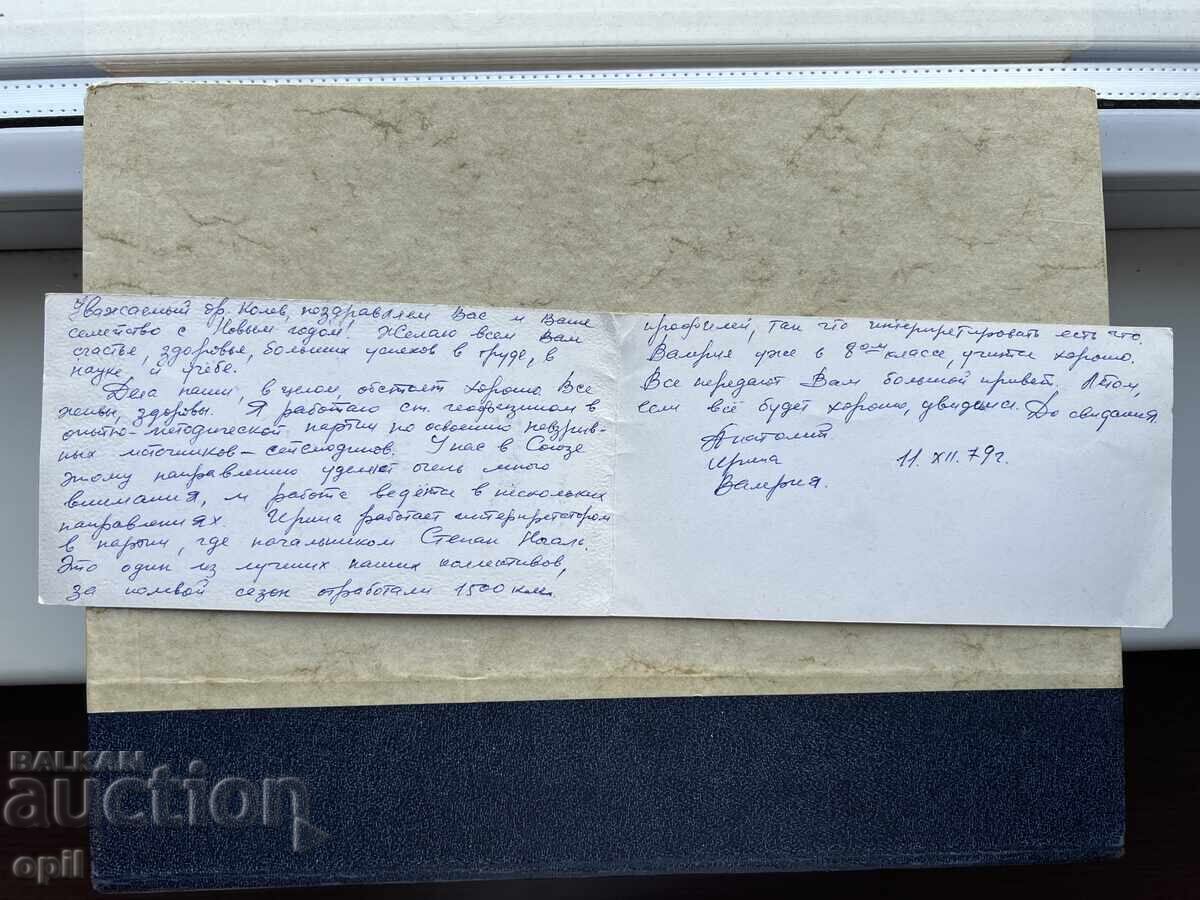 Уважаемый др. Колев, поздравляем Вас и Ваше
семейство с Новым годом! Желаю всем Вам
счастье, здоровье, больших успехов в труде, в
науке, и учёбе.
Дела наши, в целом, обстоят хорошо. Все
живы, здоровы. Я работаю ст. геофизиком в
опытно-методической партии по освоению невзрыв-
ных источников-сейсмодинов. У нас в Союзе
этому направлению уделяют очень много
внимания, и работа ведётся в нескольких
направлениях. Ирина работает интерпретатором
в партии, где начальником Степан
Это один из лучших наших коллективов,
за полевой сезон отработали 1500 км.
профилей, так что интерпретировать есть что.
Валерия уже в 8ом классе, учится хорошо.
Все передают Вам большой привет. Летом,
если всё будет хорошо, увидимся. До свидания.
Анатолий
Ирина 11.XII.79г.
Валерия.
BALKAN
auction
opil